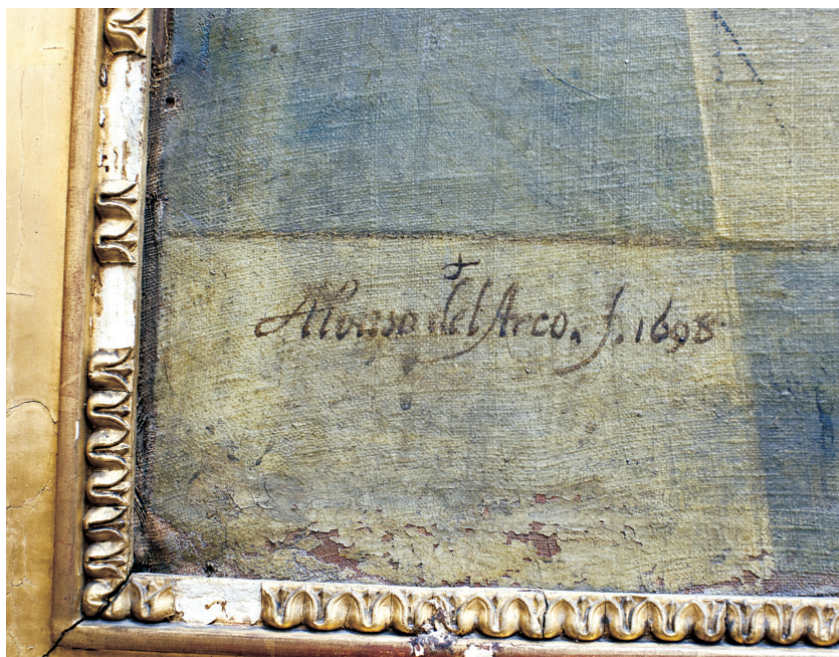 Alonso del Arco. f. 1698